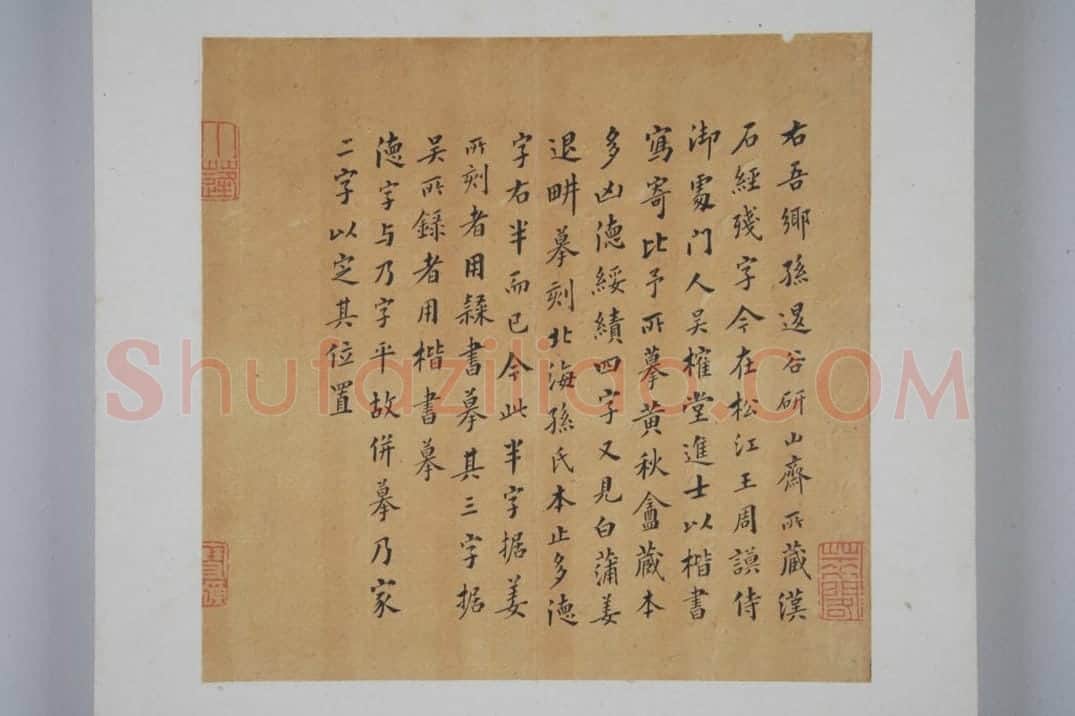 右吾鄉孫退谷研山齋所藏漢
石經殘字今在松江王周謨侍
御處門人吳榷堂進士以楷書
寫寄比予所摹黃秋盦藏本
多凶德綏績四字又見白蒲姜
退畊摹刻北海孫氏本止多德
字右半而已今此半字据姜
所刻者用隸書摹其三字据
吳所錄者用楷書摹
德字与乃字平故併摹乃家
二字以定其位置
Shufaziliao.COM